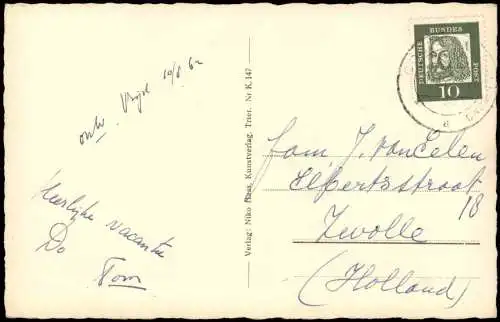 10/8 62
heerlijke vacantie
Do
Tom
Verlag: Niko Haas, Kunstverlag, Trier. Nr K. 147
DEUTSCHE BUNDES POST
10
Fam. J. van Eelen
Elbertsstraat
18
Zwolle
(Holland)